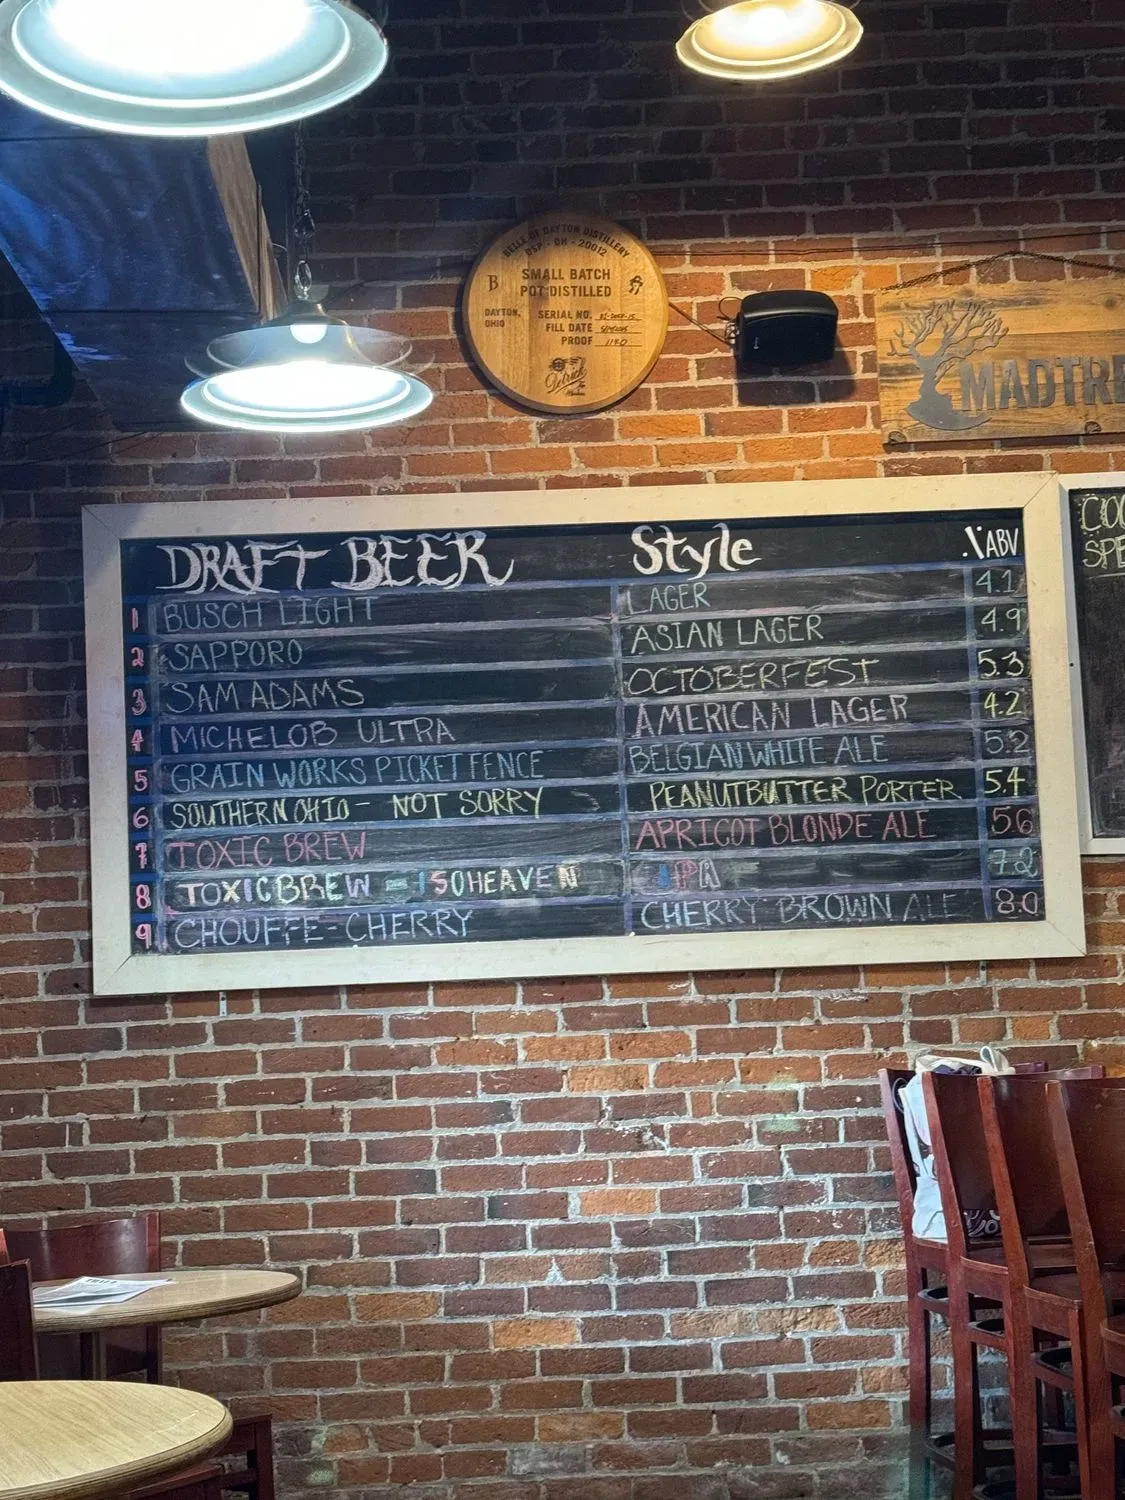 BELLE OF DAYTON DISTILLERY
DSP - OH - 20012
B
SMALL BATCH
POT DISTILLED
DAYTON,
OHIO
SERIAL NO.
FILL DATE
PROOF
MADTRE
DRAFT BEER Style .% ABV
1 BUSCH LIGHT LAGER 4.1
2 SAPPORO ASIAN LAGER 4.9
3 SAM ADAMS OCTOBERFEST 5.3
4 MICHELOB ULTRA AMERICAN LAGER 4.2
5 GRAIN WORKS PICKET FENCE BELGIAN WHITE ALE 5.2
6 SOUTHERN OHIO - NOT SORRY PEANUTBUTTER PORTER 5.4
7 TOXIC BREW APRICOT BLONDE ALE 5.6
8 TOXIC BREW - ISOHEAVEN IPA 7.2
9 CHOUFFE-CHERRY CHERRY BROWN ALE 8.0
COC
SPE